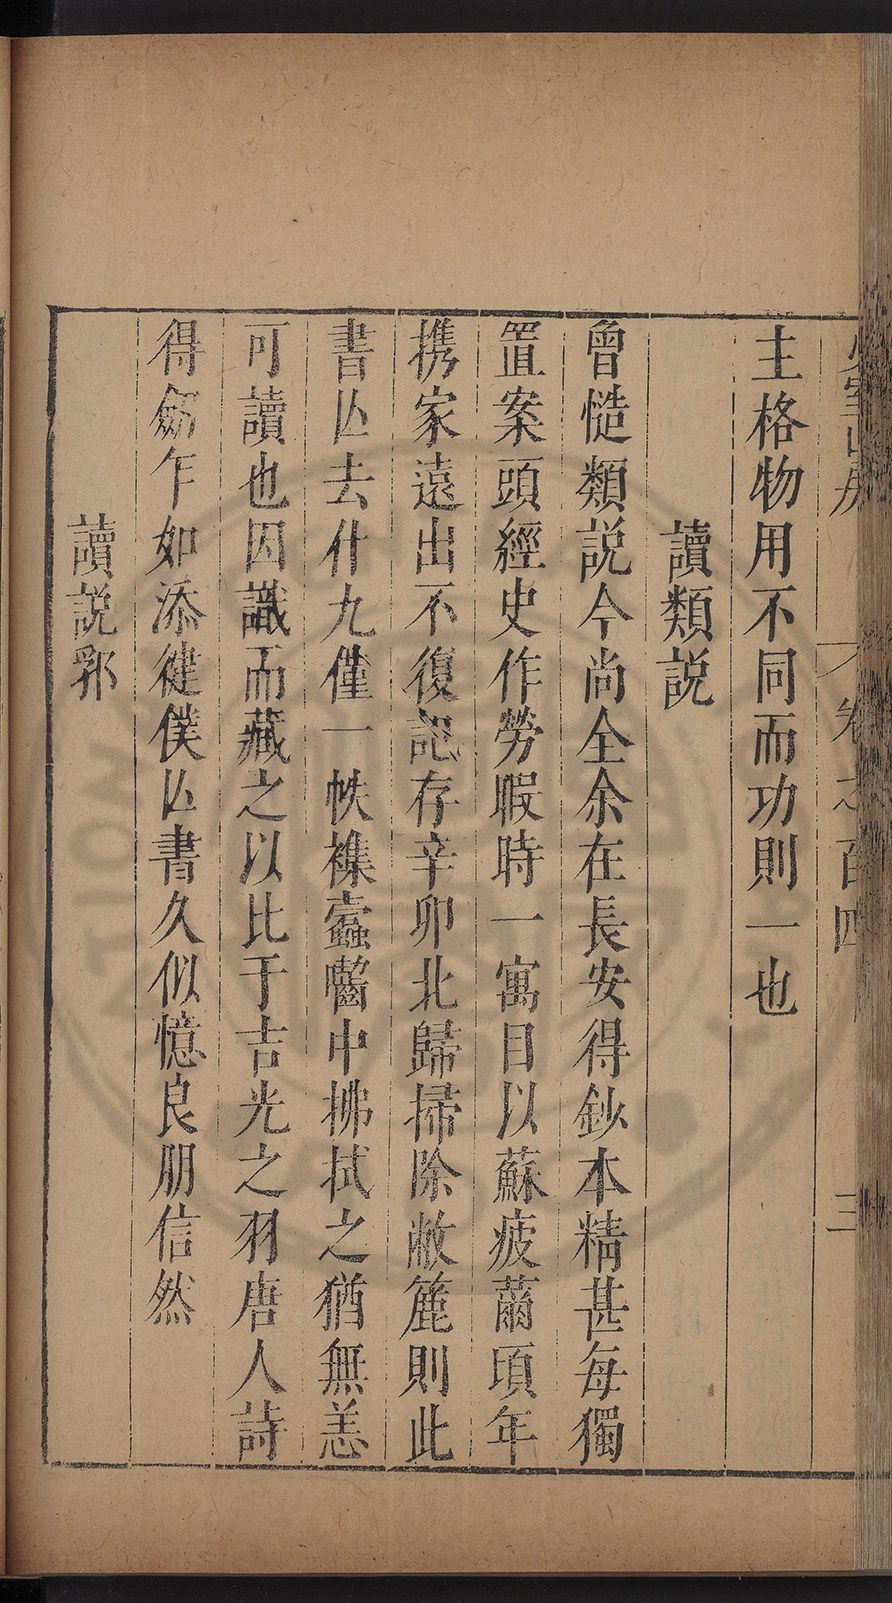 少室山房 卷之百四 三
主格物用不同而功則一也
讀類說
曾慥類說今尚全余在長安得鈔本精甚每獨
置案頭經史作勞暇時一寓目以蘇疲薾頃年
携家遠出不復記存辛卯北歸掃除敝簏則此
書亾去什九僅一帙襍蠹齧中拂拭之猶無恙
可讀也因識而藏之以比于吉光之羽唐人詩
得劒乍如添健僕亾書久似憶良朋信然
讀說郛